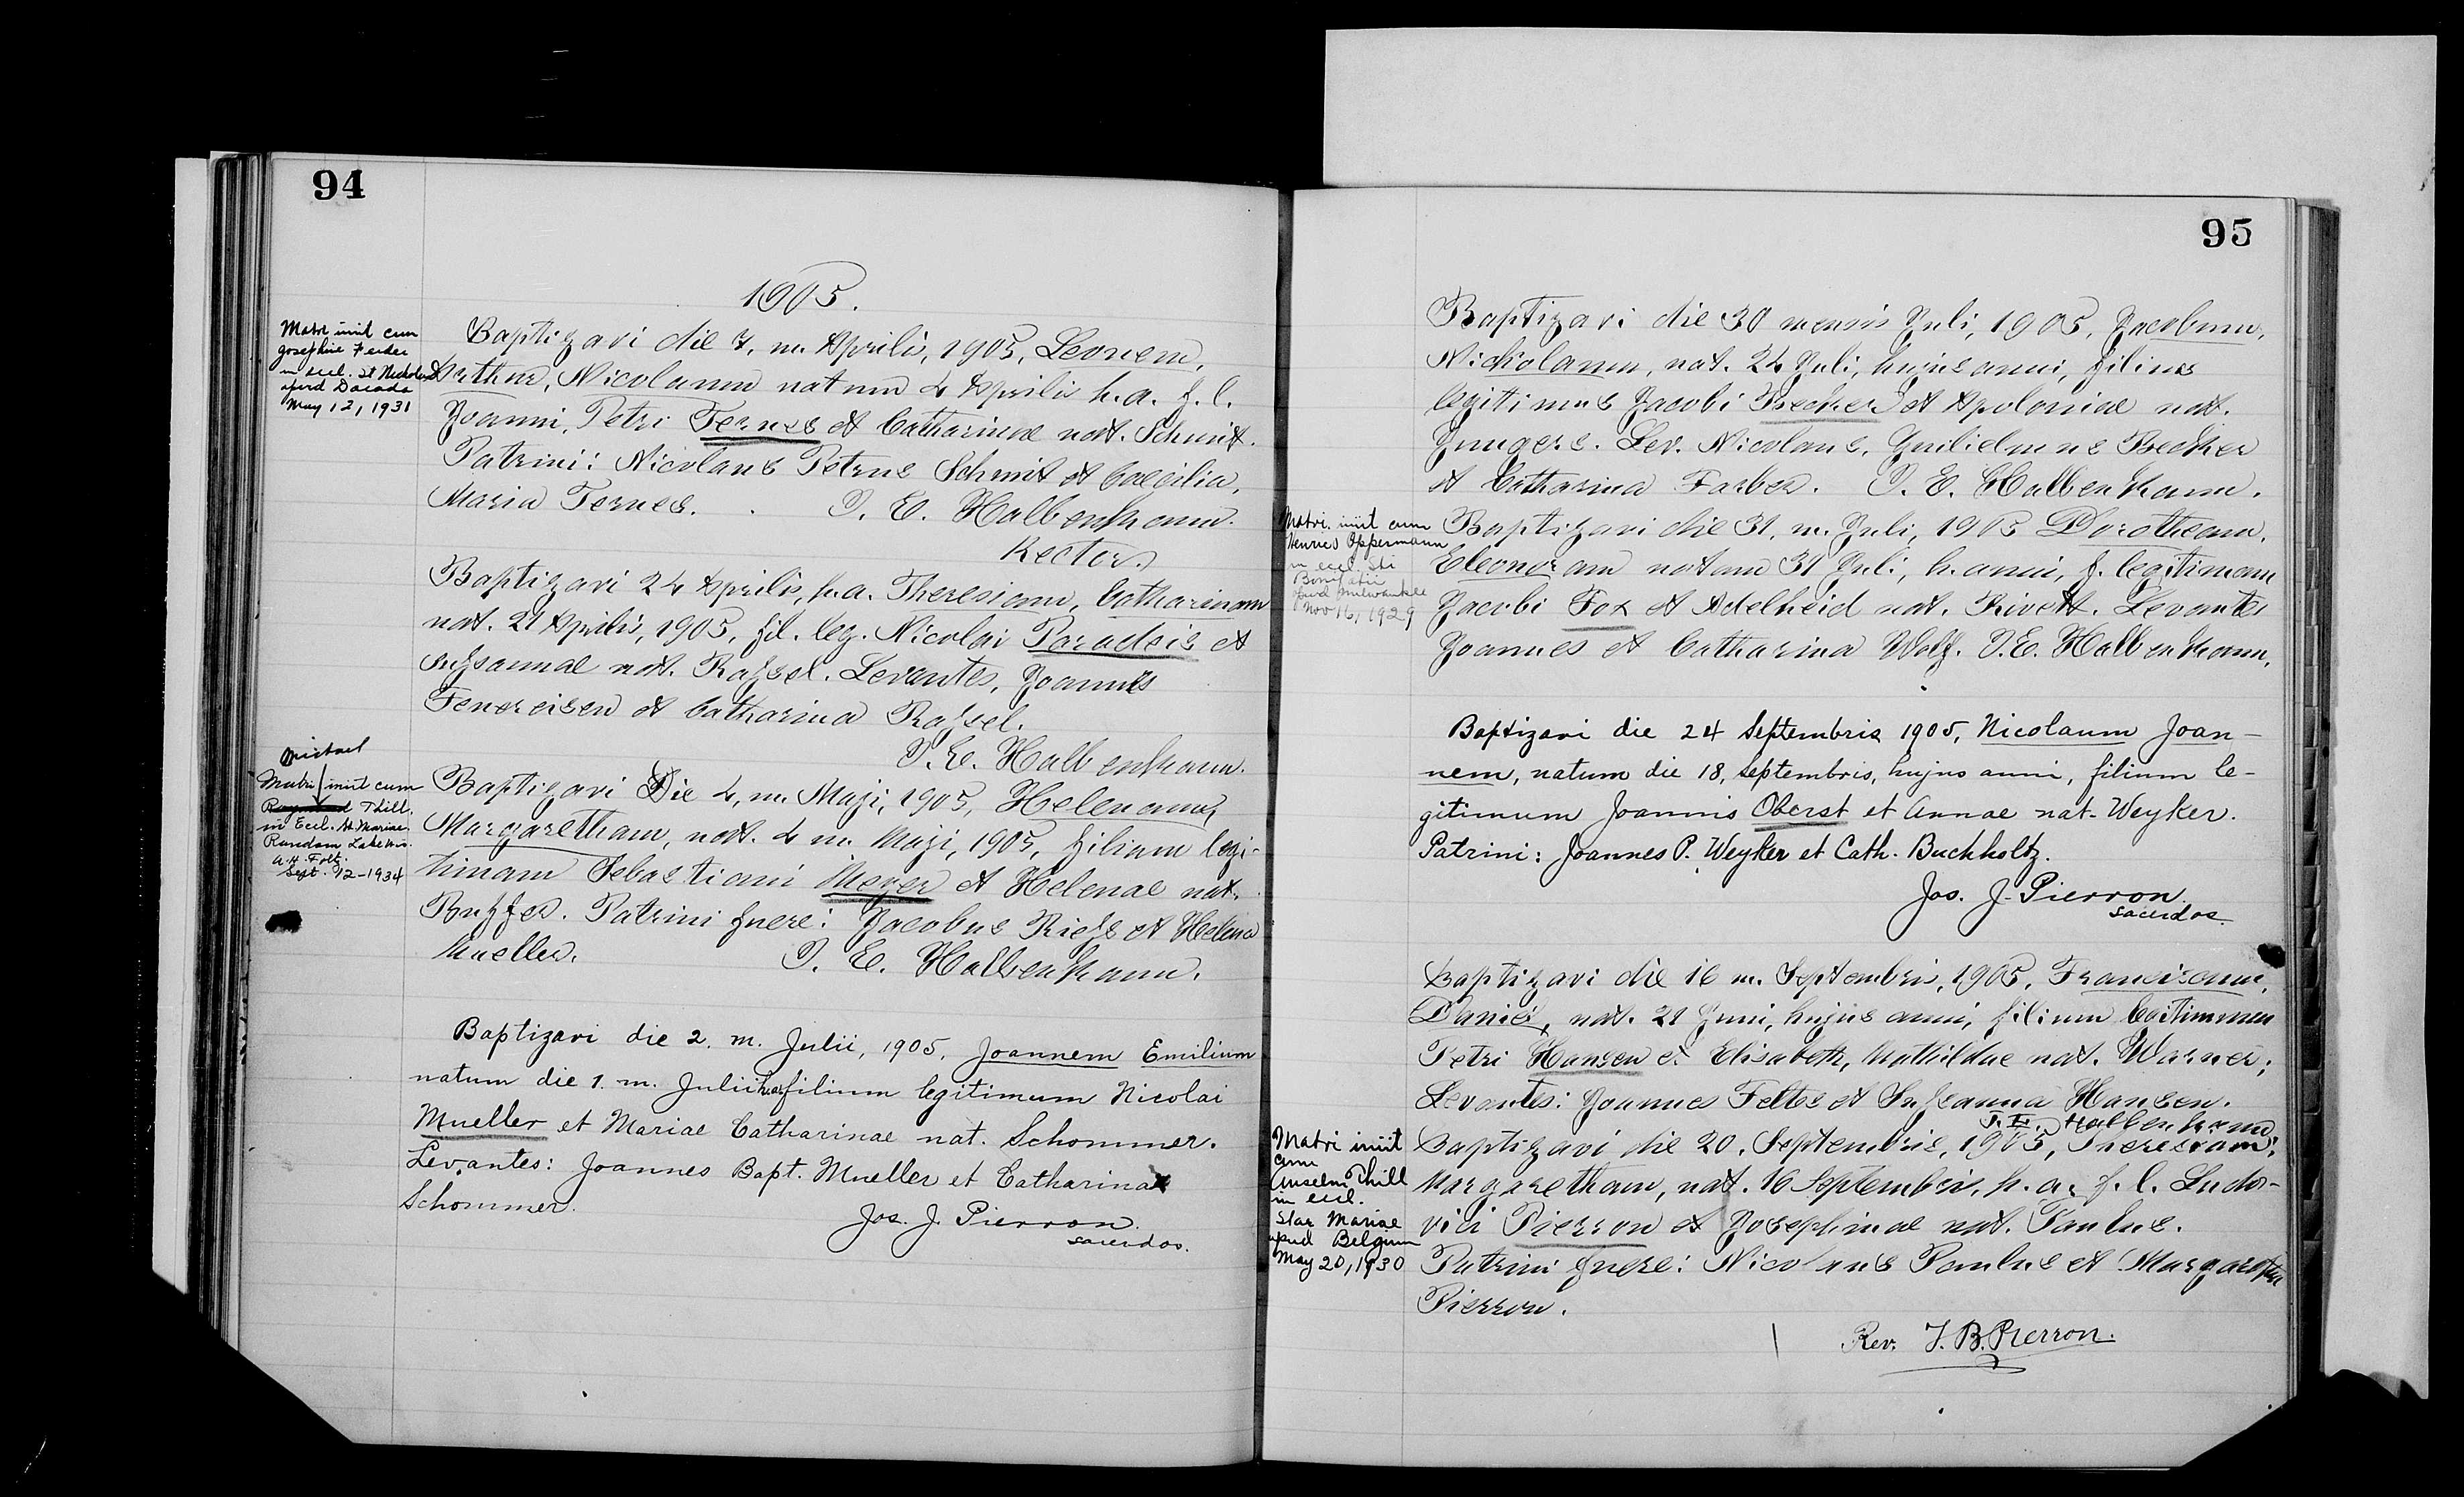 94
1905.
Matri. iniit cum
Josephine Feider
in eccl. St Nicholas
apud Dacada
May 12, 1931
Baptizavi die 7, m. Aprilis, 1905, Leonem,
Arthur, Nicolaum natum 4 Aprilis h. a. f. l.
Joanni, Petri Fernes et Catharinae nat. Schmit.
Patrini: Nicolaus Petrus Schmit et Caecilia,
Maria Fernes. J. E. Halbenkann.
Rector
Baptizavi 24 Aprilis, h. a. Theresiam, Catharinam
nat. 21 Aprilis, 1905, fil. leg. Nicolai Paradeis et
Susannae nat. Rassel. Levantes, Joannes
Feuereisen et Catharina Rassel.
J. E. Halbenkann.
Michael
Matri iniit cum
Raymond Thill
in Eccl. St. Mariae
Random Lake Wis.
A. H. Foltz.
Sept. 12-1934
Baptizavi Die 4, m. Maji, 1905, Helenam,
Margaretham, nat. 4 m. Maji, 1905, filiam legi-
timam Sebastiani Meyer et Helenae nat.
Putzfer. Patrini fuere: Jacobus Riess et Helena
Mueller. J. E. Halbenkann.
Baptizavi die 2. m. Julii, 1905, Joannem Emilium
natum die 1. m. Julii h.a. filium legitimum Nicolai
Mueller et Mariae Catharinae nat. Schommer.
Levantes: Joannes Bapt. Mueller et Catharina
Schommer.
Jos. J. Pierron.
sacerdos.
95
Baptizavi die 30 mensis Juli, 1905, Jacobum,
Nickolaum, nat. 24 Juli, hujus anni, filius
legitimus Jacobi Becker et Apoloniae nat.
Jungers. Lev. Nicolaus, Guilielmus Becker
et Catharina Farber. J. E. Halbenkann.
Matri. iniit cum
Henrico Oppermann
in eccl. Sti
Bonifatii
apud Milwaukee
Nov 16, 1929
Baptizavi die 31, m. Juli, 1905 Dorotheam,
Eleonoram natam 31 Juli, h. anni, f. legitimam
Jacobi Fox et Adelheid nat. Rivett. Levantes
Joannes et Catharina Wolf. J. E. Halbenkann,
Baptizavi die 24 Septembris 1905, Nicolaum Joan-
nem, natum die 18, Septembris, hujus anni, filium le-
gitimum Joannis Oberst et Annae nat. Weyker.
Patrini: Joannes P. Weyker et Cath. Buchholtz.
Jos. J. Pierron.
sacerdos.
Baptizavi die 16 m. Septembris, 1905, Franciscum,
Daniel, nat. 21 Juni, hujus anni, filium legitimum
Petri Hansen et Elisabeth, Mathildae nat. Warner;
Levantes: Joannes Feltes et Susanna Hansen.
J. E. Halbenkann
Matri iniit
cum
Anselm Thill
in eccl.
Stae Mariae
apud Belgium
May 20, 1930
Baptizavi die 20, Septembris, 1905, Theresiam,
Margaretham, nat. 16 Septembris, h. a. f. l. Ludo-
vici Pierron et Josephinae nat. Paulus.
Patrini fuere: Nicolaus Paulus et Margaretha
Pierron.
Rev. J. B. Pierron.